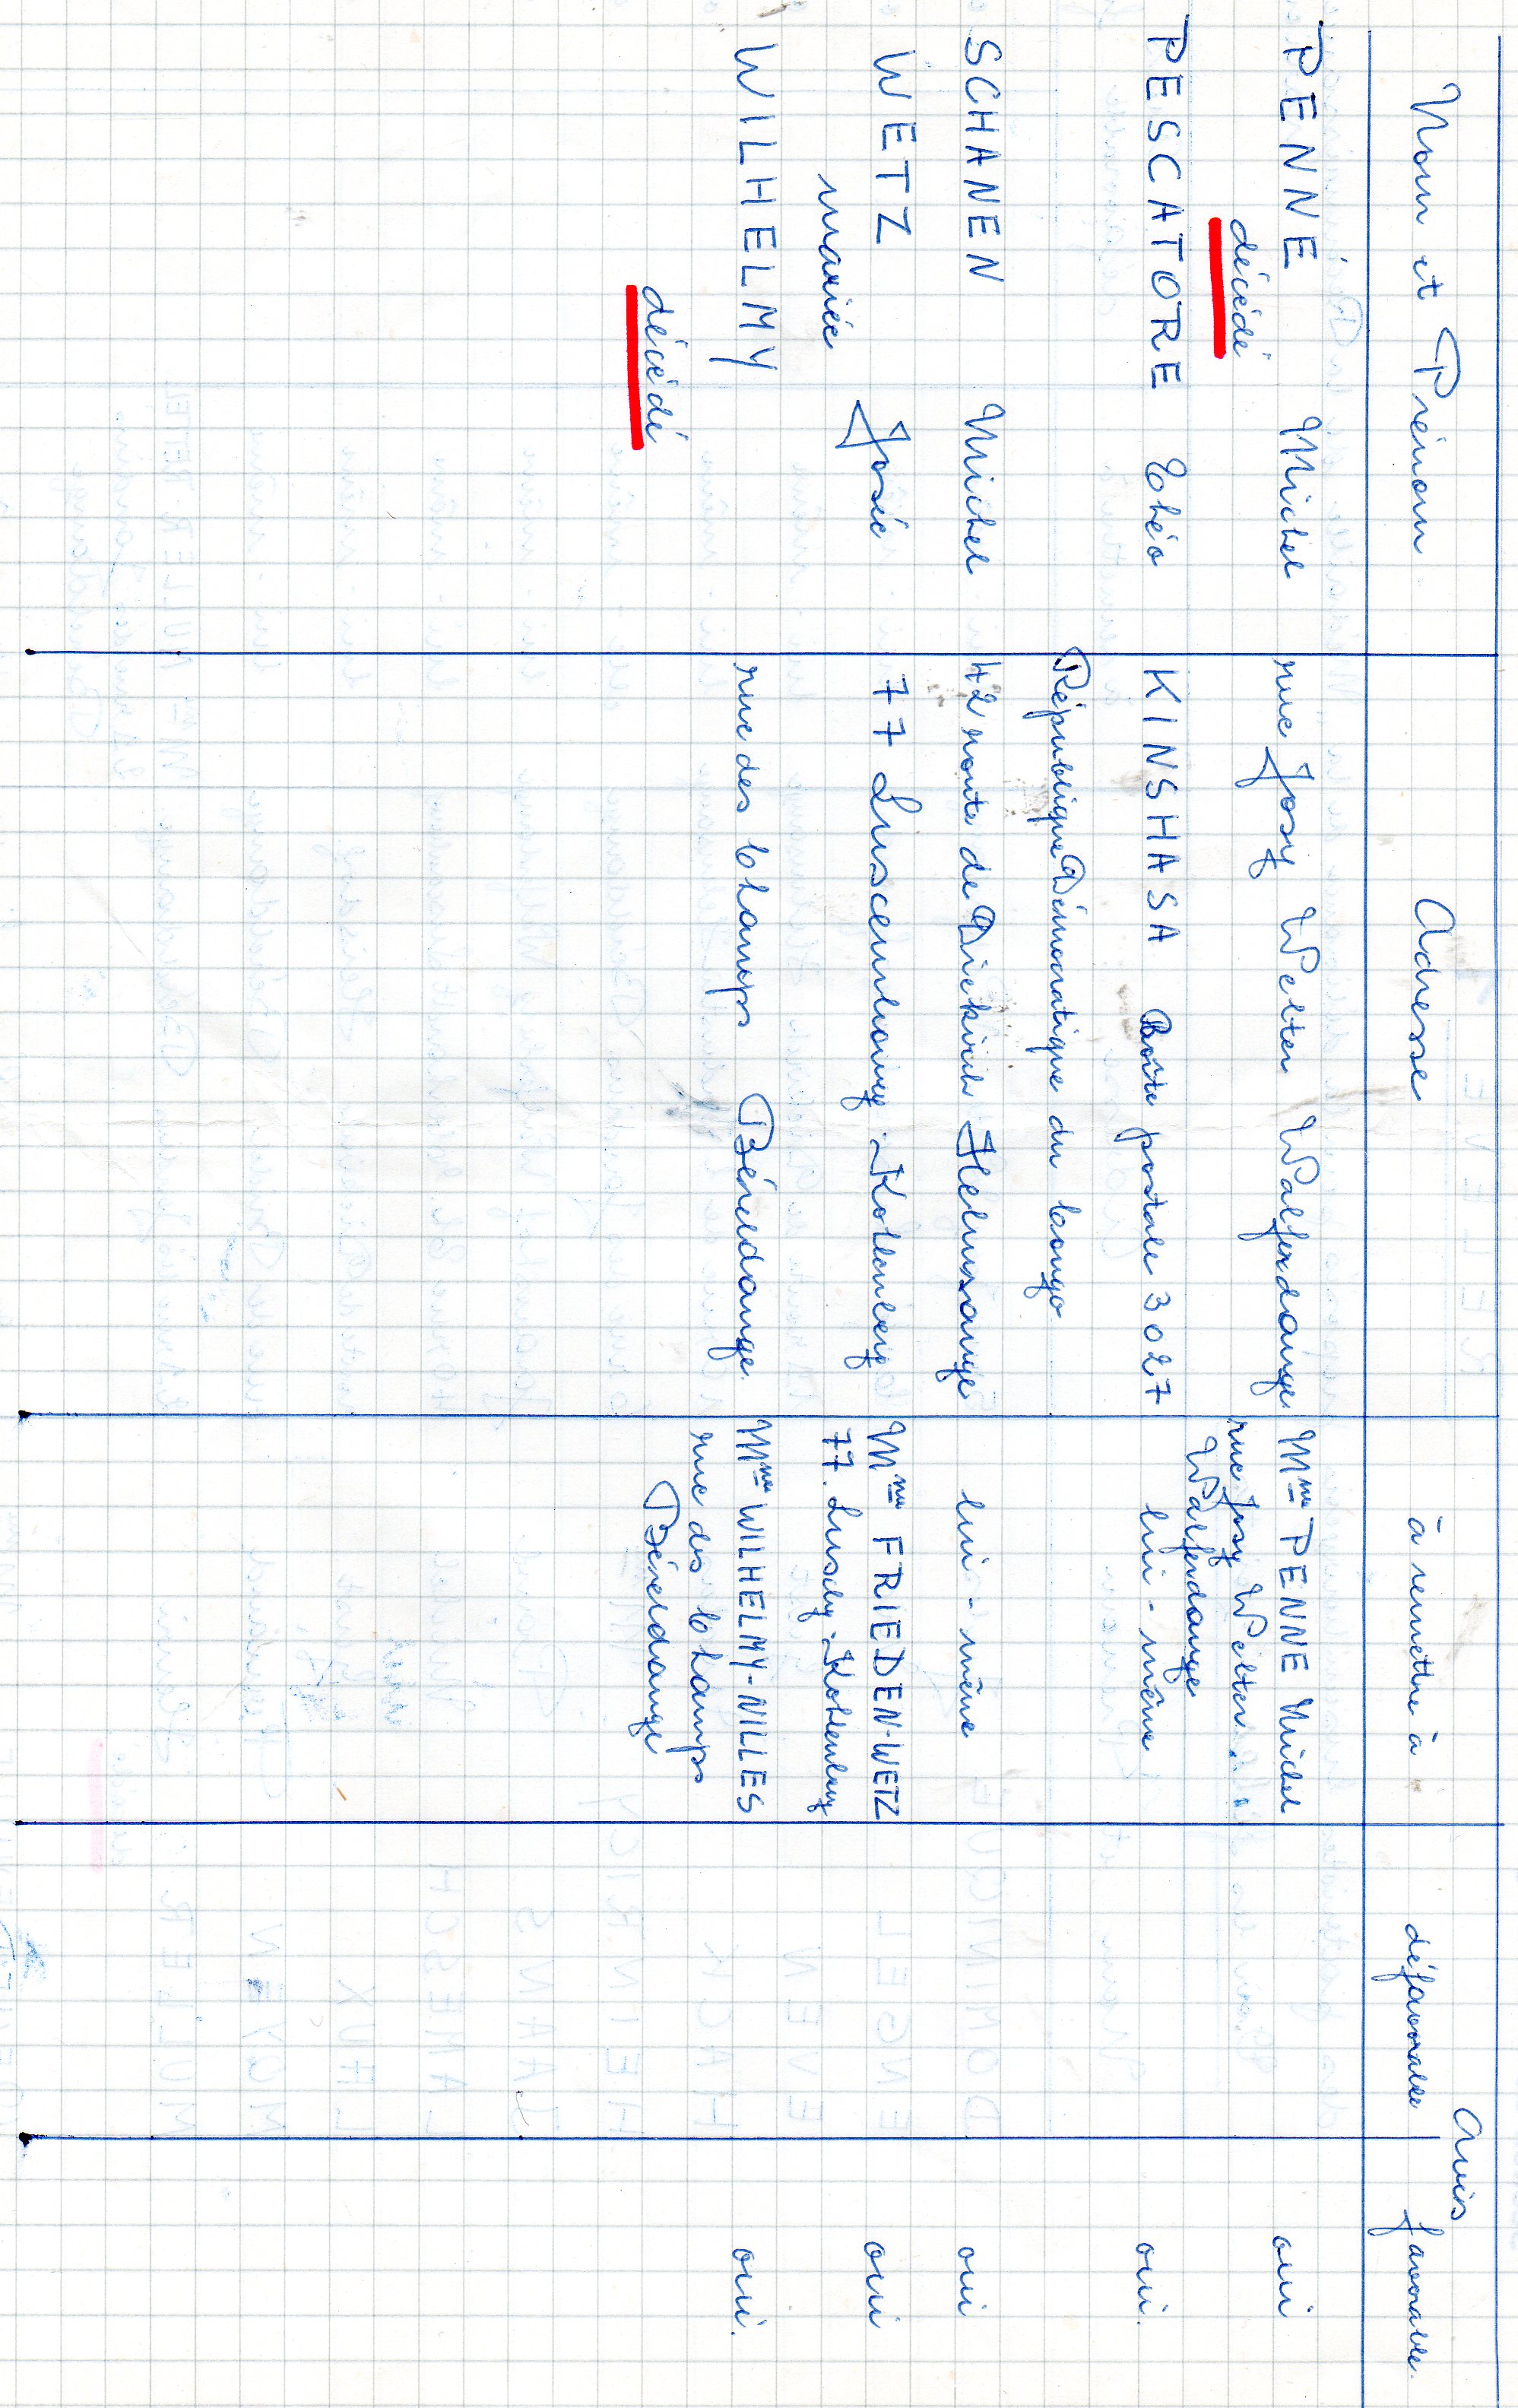 Avis
Nom et Prénom Adresse à remettre à défavorable favorable.
PENNE Michel rue Josy Welter Walferdange Mme PENNE Michel oui
décédé rue Josy Welter.
Walferdange
PESCATORE Théo KINSHASA Boîte postale 3027 lui-même oui.
République Démocratique du Congo
SCHANEN Michel 42 route de Diekirch Helmsange lui-même oui
WETZ Josée 77 Kohlenberg Mme FRIEDEN-WETZ oui
mariée 77. Kohlenberg
WILHELMY rue des Champs Béreldange. Mme WILHELMY-NILLES oui.
rue des Champs
décédé Béreldange